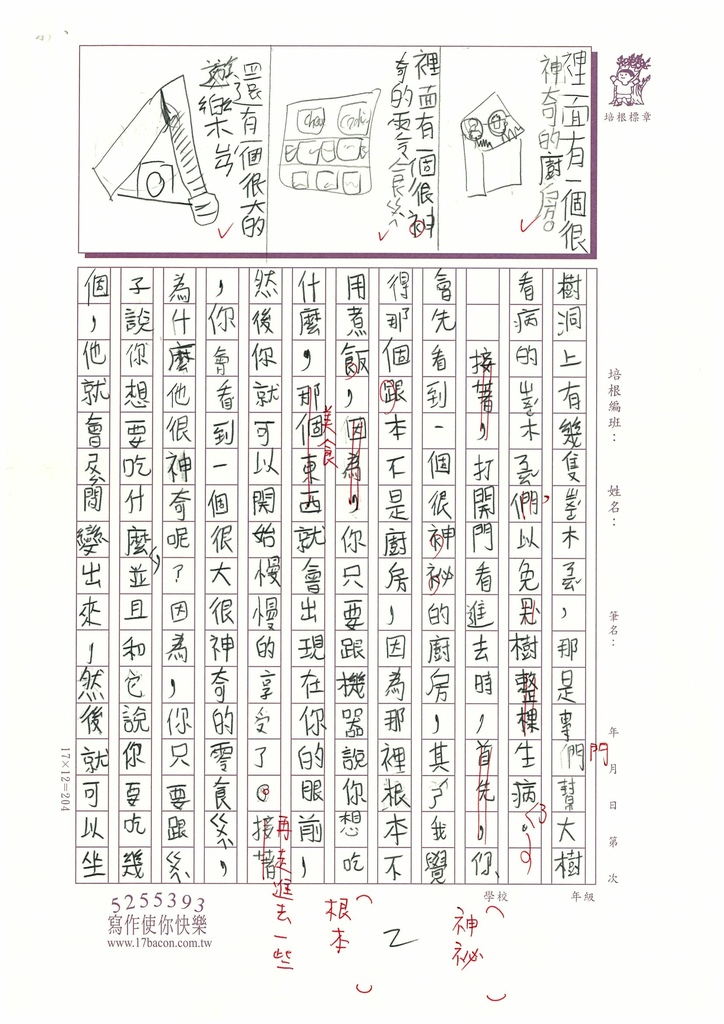 裡面有一個很
神奇的廚房
裡面有一個很神
奇的零食ㄐㄧ
還有一個很大的
遊樂ㄩㄢˊ
培根標章
培根編班：
姓名：
筆名：
年 月 日 第 次
樹洞上有幾隻啄木鳥，那是專們幫大樹
門
看病的啄木鳥們，以免大樹整棵生病。
接著，打開門看進去時，首先，你
會先看到一個很神祕的廚房，其了我覺
得那個跟本不是廚房，因為那裡根本不
用煮飯，因為，你只要跟機器說你想吃
什麼，那個東西就會出現在你的眼前，
美食
然後你就可以開始慢慢的享受了。接著
再走進去一些
，你會看到一個很大很神奇的零食ㄐㄧ，
為什麼他很神奇呢？因為，你只要跟ㄐㄧ
子說你想要吃什麼並且和它說你要吃幾
個，他就會瞬間變出來，然後就可以坐
17×12=204
學校
年級
（神祕）
2
（根本）
5255393
寫作使你快樂
www.17bacon.com.tw